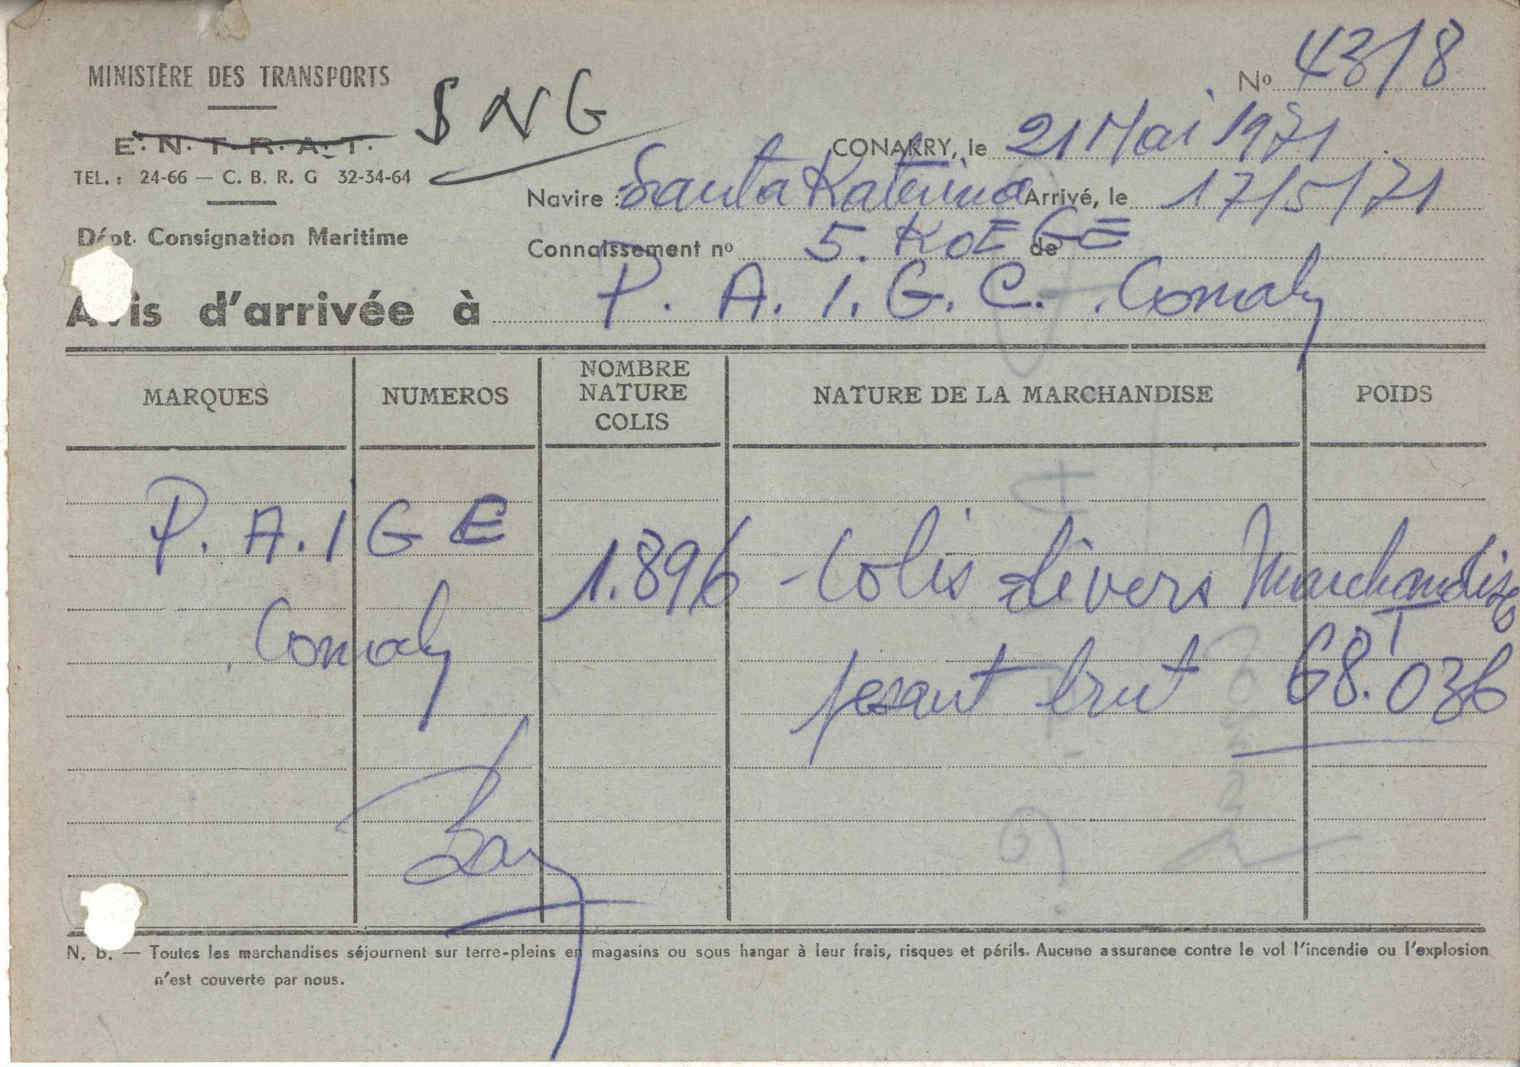 MINISTÈRE DES TRANSPORTS
Nº 4318
E. N. T. R. A. T. SNG
CONAKRY, le 21 Mai 1971
TEL. : 24-66 — C. B. R. G 32-34-64
Navire : Santa Katerina Arrivé, le 17/5/71
Dépt. Consignation Maritime
Connaissement nº 5. de
Avis d'arrivée à P. A. I. G. C. Conakry
MARQUES NUMEROS NOMBRE NATURE COLIS NATURE DE LA MARCHANDISE POIDS
P. A. I G E
1.896 - Colis divers Marchandises
Conaky
pesant brut 68.T036
N. B. — Toutes les marchandises séjournent sur terre-pleins en magasins ou sous hangar à leur frais, risques et périls. Aucune assurance contre le vol l'incendie ou l'explosion
n'est couverte par nous.